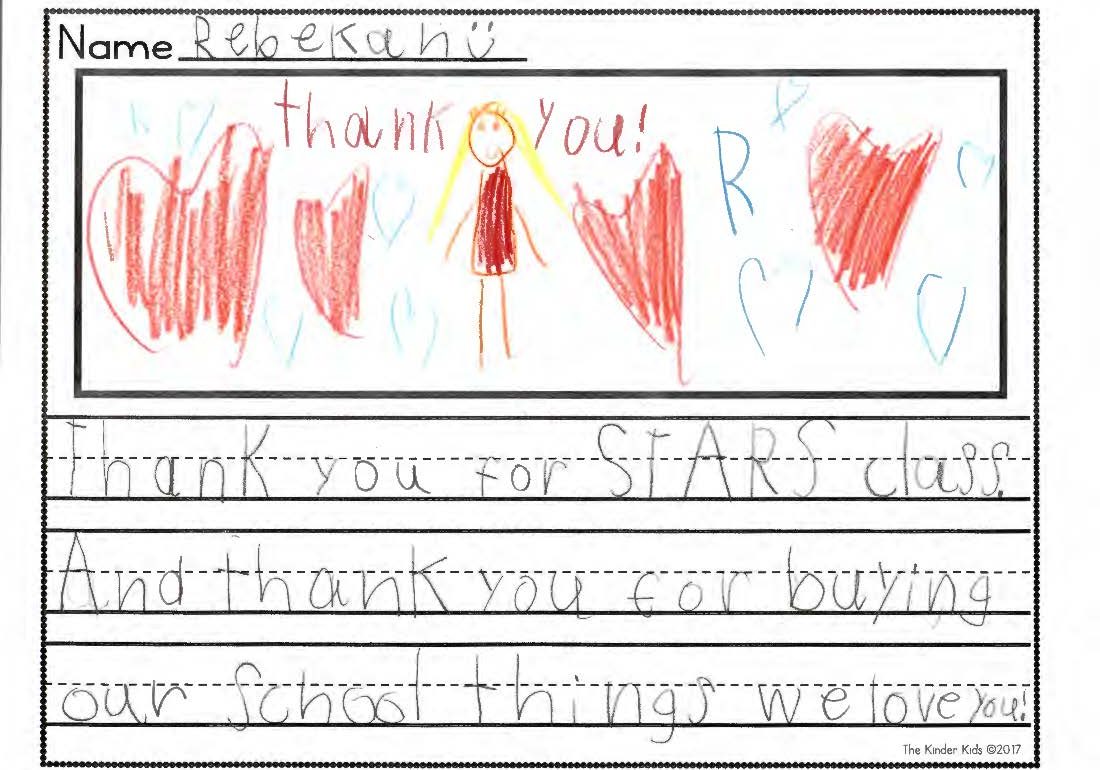 Name Rebekah ü
thank you!
R
Thank you for STARS class.
And thank you for buying
our school things we love you!
The Kinder Kids ©2017